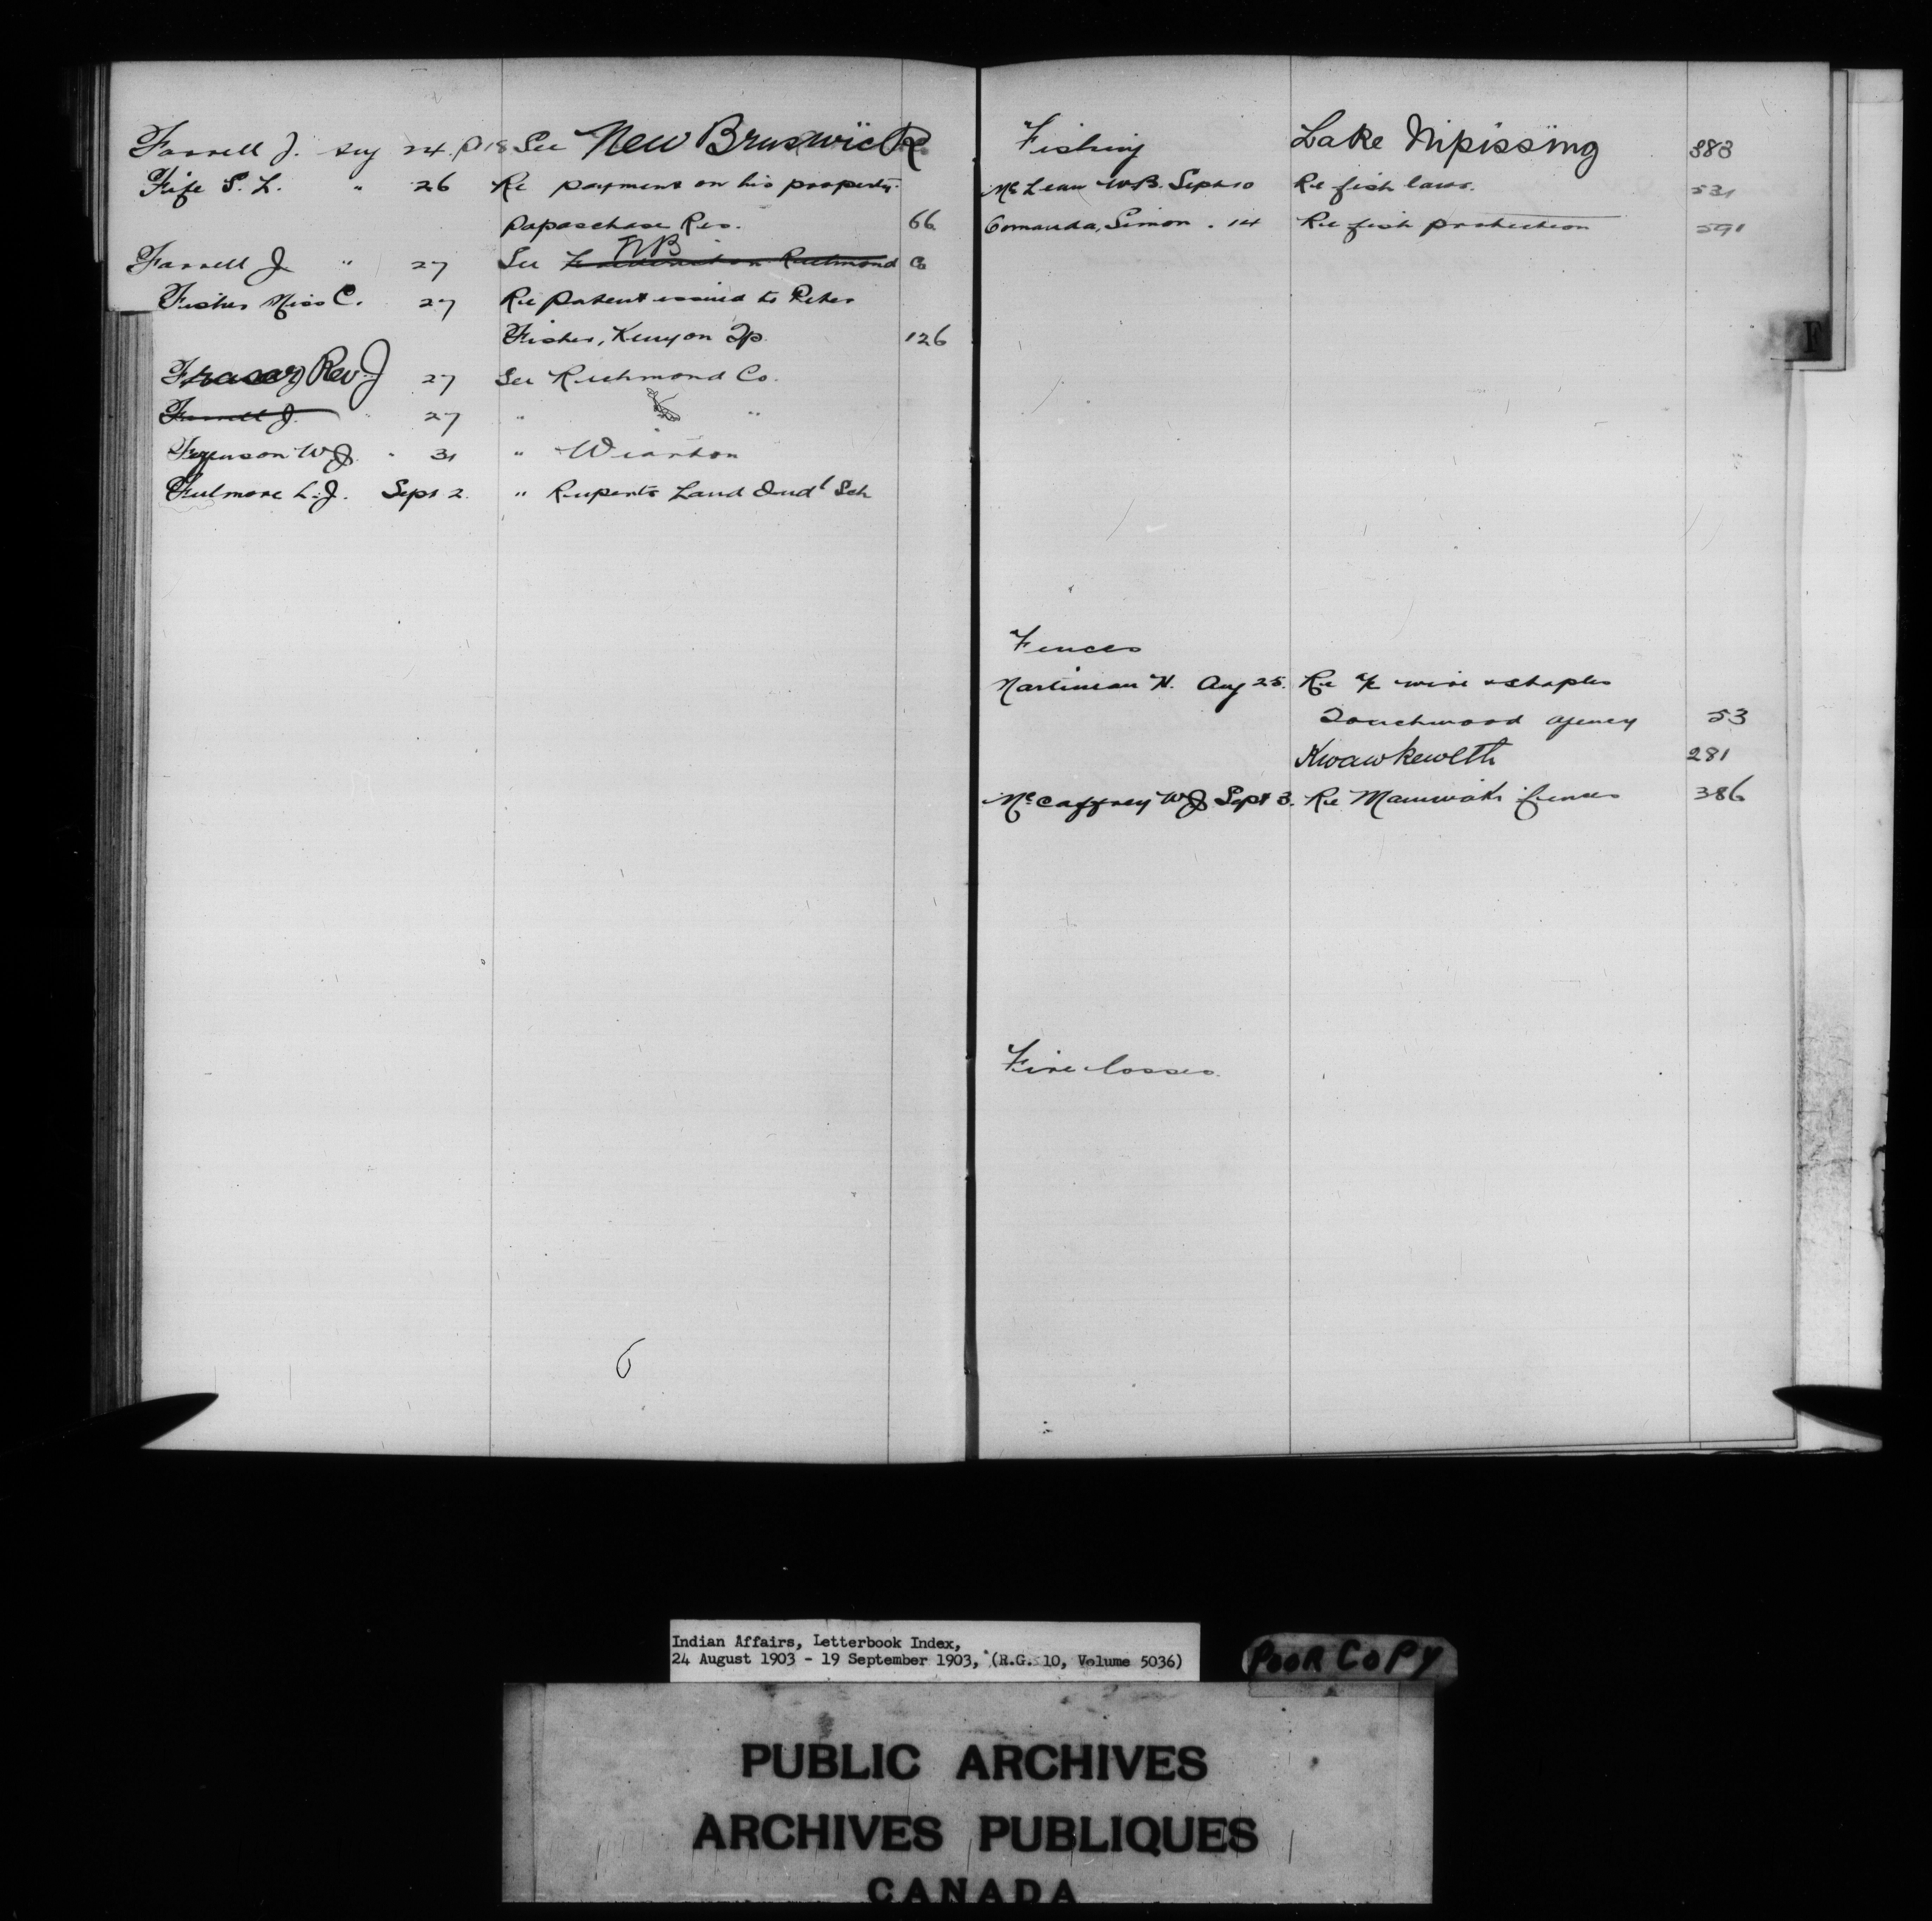 Farrell J. Aug 24. P18 See New Brunswick
Fife S. L. " 26 Re payment on his property.
Papaschase Res. 66
Farrell J " 27 See NB Richmond Co
Fisher Miss C. 27 Re patent issued to Peter
Fisher, Kenyon Tp. 126
Fraser Rev. J 27 See Richmond Co.
Farrell J. " 27 " "
Ferguson W J. " 31 " Wiarton
Fulmore L. J. Sept 2. " Ruperts Land Indl Sch
Fishing Lake Nipissing 383
McLean W B. Sept 10 Re fish laws. 531
Comanda, Simon . 14 Re fish protection 591
Fences
Martineau H. Aug 25. Re a/c wire & staples
Touchwood agency 53
Kwawkewlth 281
McCaffrey W J Sept 3. Re Maniwaki fences 386
Fire losses.
F
Indian Affairs, Letterbook Index,
24 August 1903 - 19 September 1903, (R.G. 10, Volume 5036)
POOR COPY
PUBLIC ARCHIVES
ARCHIVES PUBLIQUES
CANADA